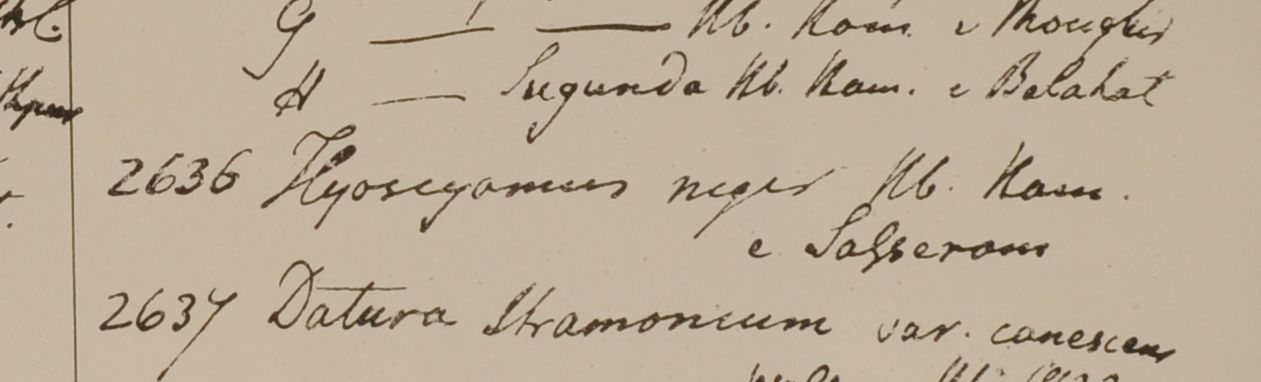 G — — Hb. Ham. e Mongher
H — Segunda Hb. Ham. e Belahat
2636 Hyoscyamus niger Hb. Ham.
e Sasseram
2637 Datura Stramonium var. canescens